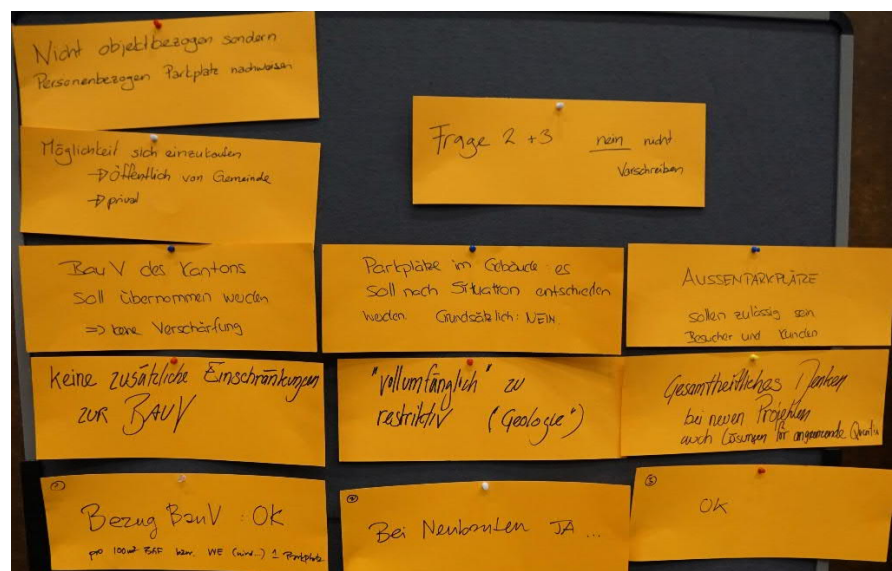 Nicht objektbezogen sondern
Personenbezogen Parkplätze nachweisen
Möglichkeit sich einzukaufen
→ Öffentlich von Gemeinde
→ privat
Frage 2 + 3 nein nicht
Vorschreiben
BauV des Kantons
soll übernommen werden
=> keine Verschärfung
Parkplätze im Gebäude: es
soll nach Situation entschieden
werden. Grundsätzlich: NEIN.
AUSSENPARKPLÄTZE
sollen zulässig sein
Besucher und Kunden
Keine zusätzliche Einschränkungen
ZUR BAUV
"vollumfänglich" zu
restriktiv ("Geologie")
Gesamtheitliches Denken
bei neuen Projekten
auch Lösungen für angrenzende
Bezug BauV: OK
pro 100m² BGF bzw. WE (mind..) 1 Parkplatz
Bei Neubauten JA ...
OK